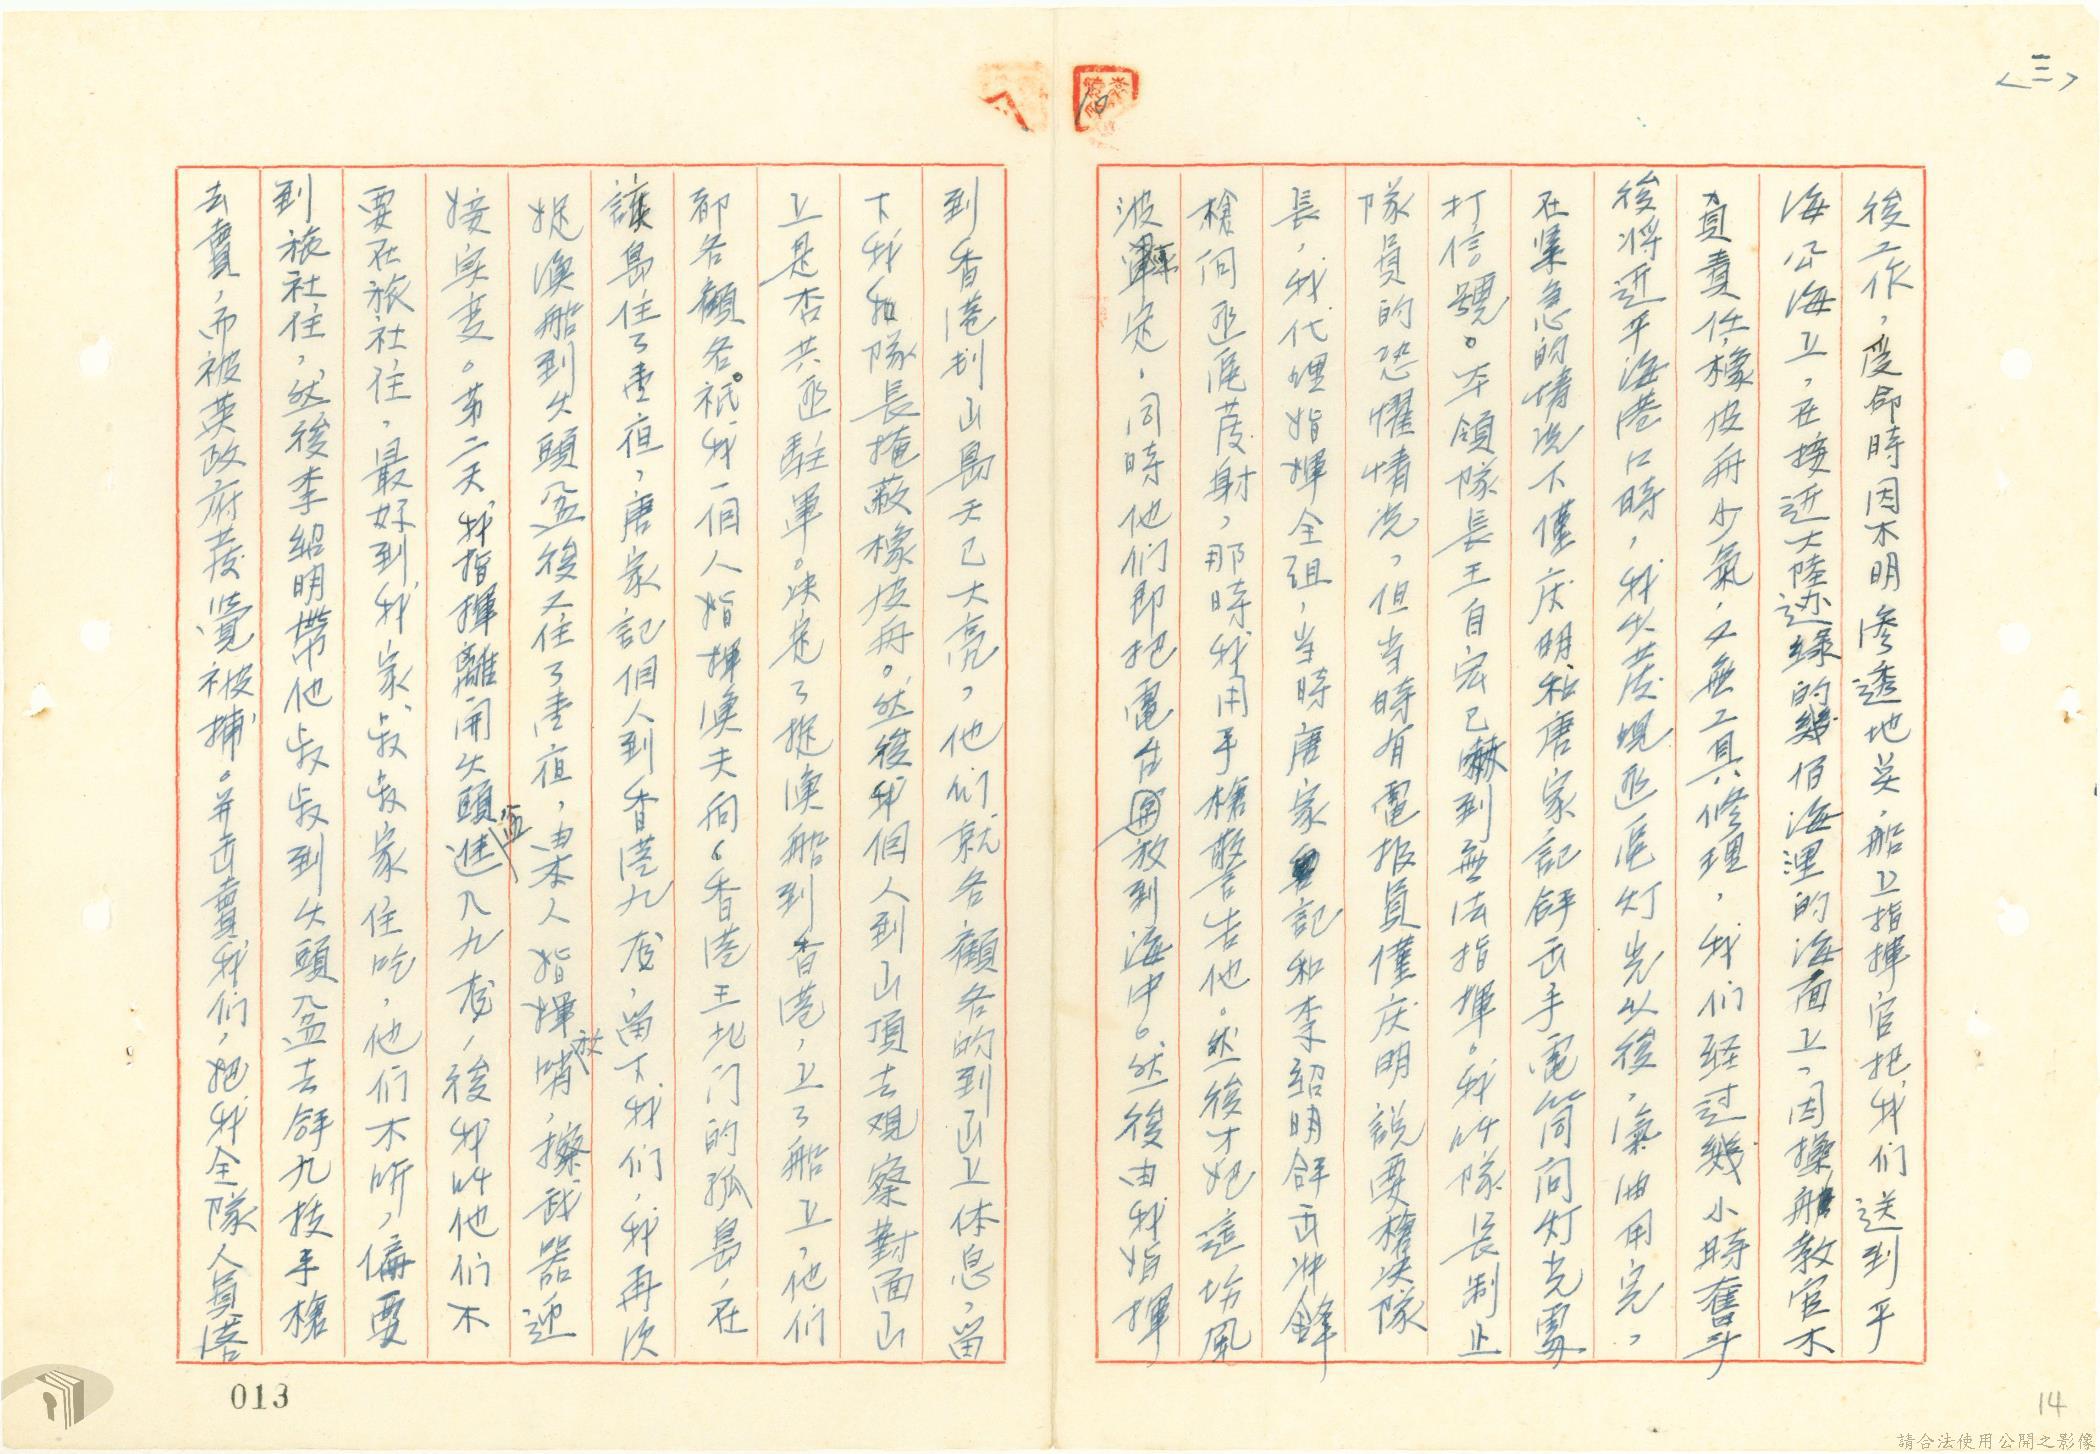 <三>
後工作，受命時因不明滲透地点，船上指揮官把我们送到平
海公海上，在接近大陸边缘的幾佰海浬的海面上，因操船教官不
負責任，橡皮舟少氣，又無工具修理，我们経过幾小時奮斗
後将近平海港口時，我以发现匪區灯光以後，氣油用完，
在緊急的情况下僅庆明和唐家記舒击手電筒向灯光處
打信號。本領隊長王自宏已嚇到無法指揮。我叫隊長制止
隊員的恐懼情况，但当時有電报員僅庆明説要槍决隊
長，我代理指揮全組，当時唐家記和李紹明舒击冲鋒
槍向匪區发射，那時我用手槍警告他。然後才把這坊風
波平定，同時他们即把電台開放到海中。然後由我指揮
到香港刬山島天已大亮，他们就各顧各的到山上体息，留
下我和隊長掩蔽橡皮舟。然後我個人到山頂去观察對面山
上是否共匪駐軍。决定了捉漁船到香港，上了船上，他们
都各顧各。祇我一個人指揮漁夫向《香港王北门的孤島，在
該島住了壹夜，唐家記個人到香港九龙，留下我们，我再次
捉漁船到大頭盆後又住了壹夜，由本人指揮放哨，擦武器迎
接突变。第二天我指揮離開大頭盆進入九龙，後我叫他们不
要在旅社住，最好到我家叔叔家住吃，他们不听，偏要
到旅社住，然後李紹明帶他叔叔到大頭盆去舒九枝手槍
去賣，而被英政府发覺被捕。并击賣我们，把我全隊人員塔
013
14
請合法使用公開之影像